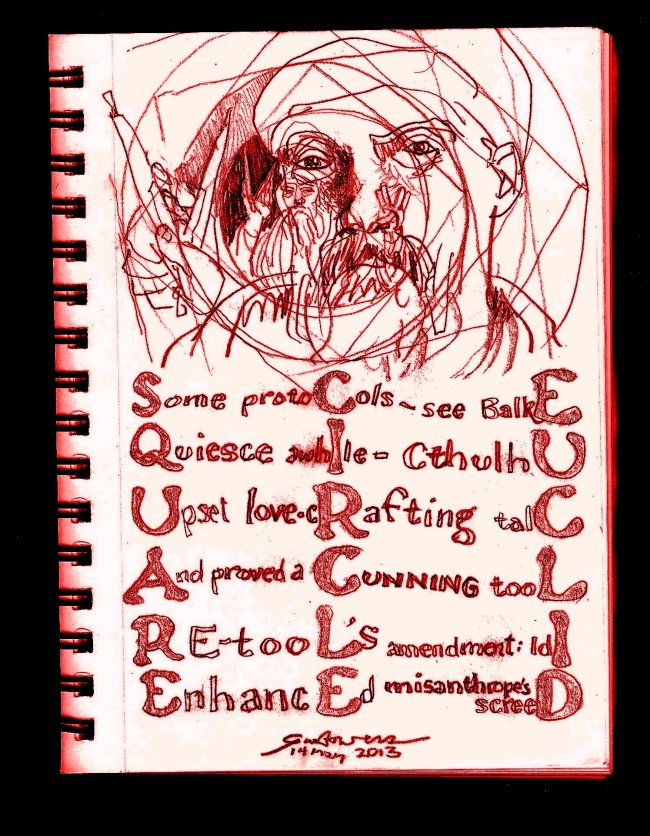 Some protoCols - see BalkE
Quiesce awhIle - CthulhU
Upset love-cRafting talC
And proved a CUNNING tooL
RE-tooL's amendment: IdI
EnhancEd misanthrope's
screeD
14 May 2013